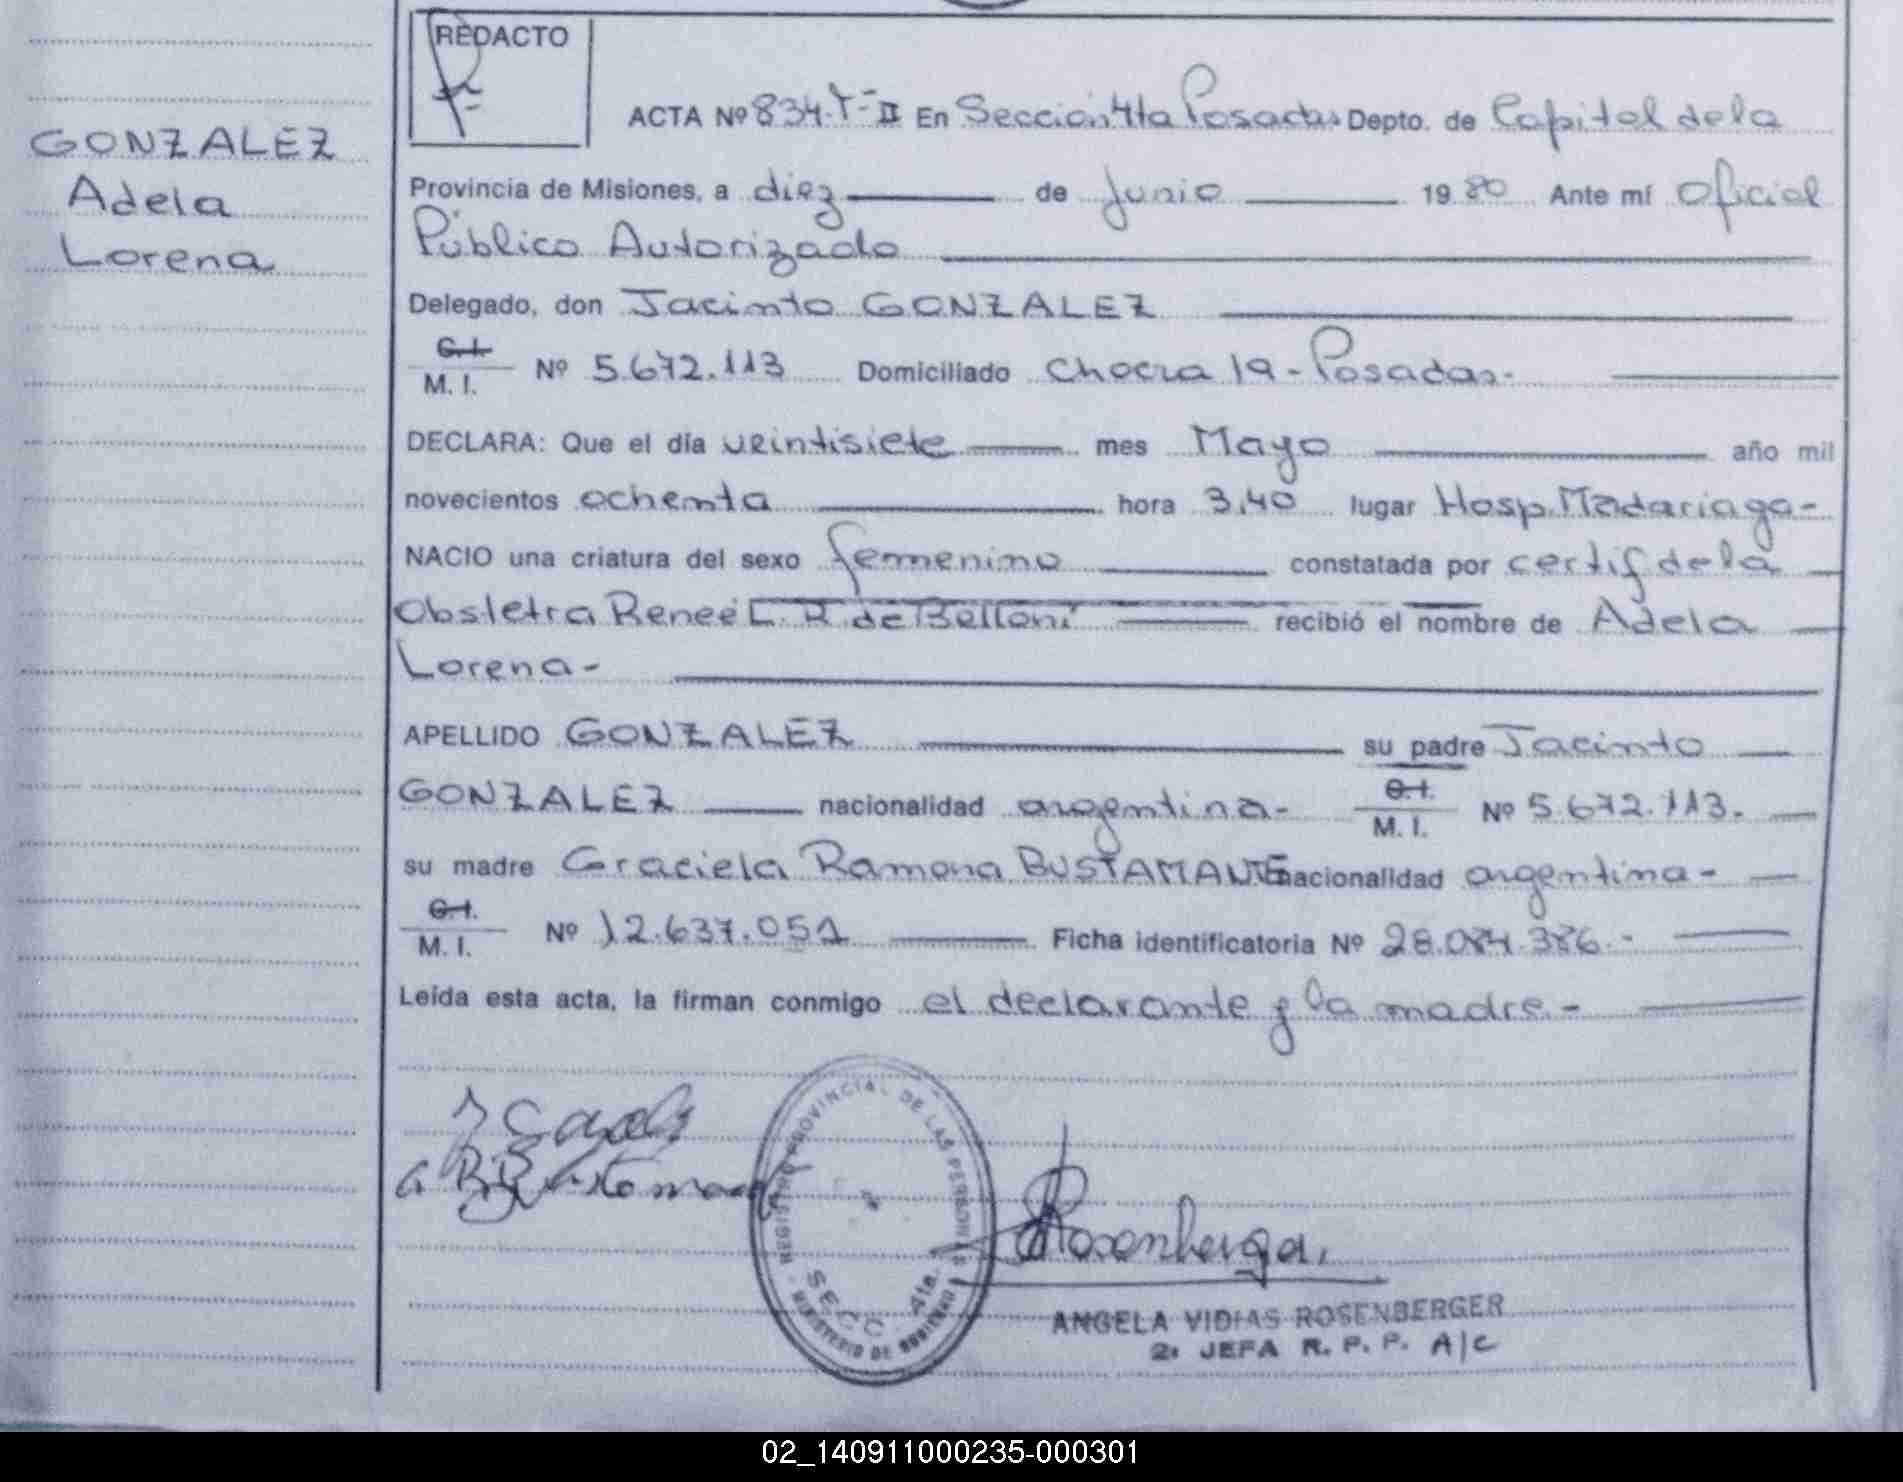 REDACTO
GONZALEZ
Adela
Lorena
ACTA Nº 834-T-II En Sección 4ta Posadas Depto. de Capital de la
Provincia de Misiones, a diez de Junio 19 80 Ante mí Oficial
Público Autorizado
Delegado, don Jacinto GONZALEZ
C.I.
M. I. Nº 5.672.113 Domiciliado Chacra 19 - Posadas-
DECLARA: Que el día veintisiete mes Mayo año mil
novecientos ochenta hora 3,40 lugar Hosp. Madariaga-
NACIO una criatura del sexo femenino constatada por certif de la
Obstetra Reneé L. R de Belloni recibió el nombre de Adela
Lorena-
APELLIDO GONZALEZ su padre Jacinto
GONZALEZ nacionalidad argentina- C.I.
M. I. Nº 5.672.113.
su madre Graciela Ramona BUSTAMANTE nacionalidad argentina-
C.I.
M. I. Nº 12.637.051 Ficha identificatoria Nº 28.084.386.-
Leída esta acta, la firman conmigo el declarante y la madre.-
REGISTRO PROVINCIAL DE LAS PERSONAS
SECC 4ta.
MINISTERIO DE GOBIERNO
ANGELA VIDIAS ROSENBERGER
2ª JEFA R. P. P. A/C
02_140911000235-000301